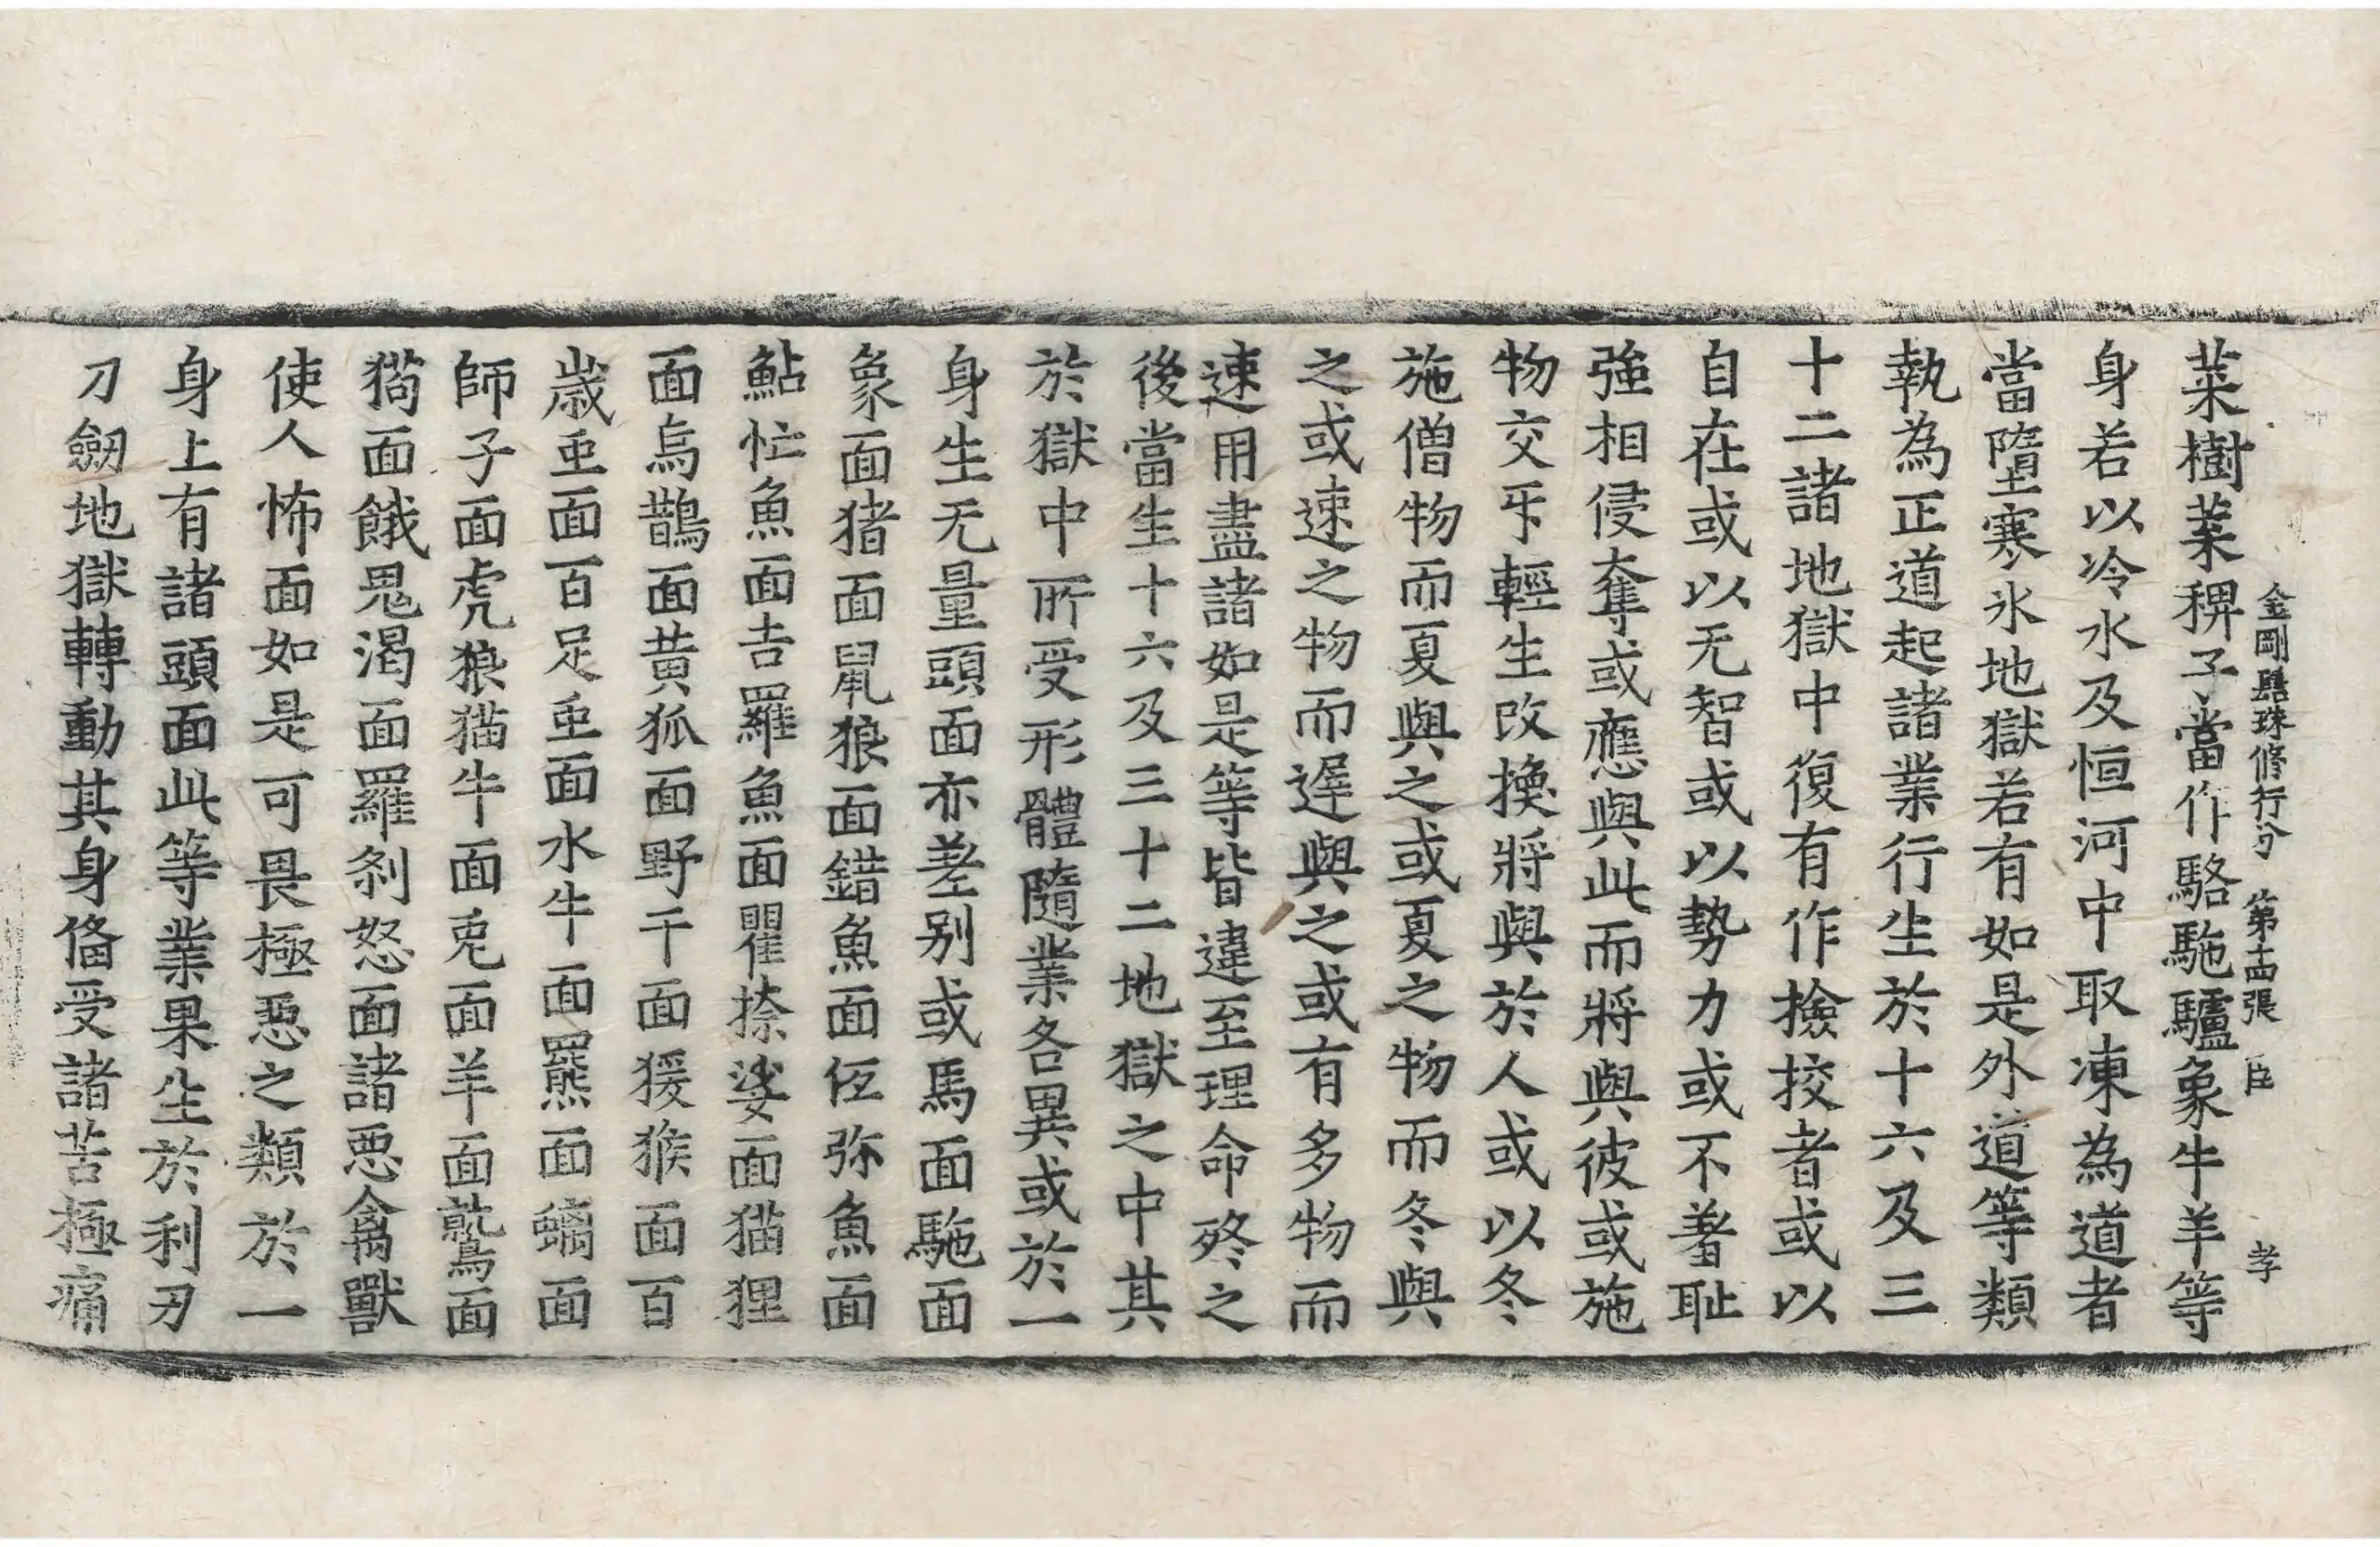 菜樹菓稗子當作駱駞驢象牛羊等
金剛髻珠修行分 第十四張 臣 孝
身若以冷水及恒河中取凍為道者
當墮寒氷地獄若有如是外道等類
執為正道起諸業行生於十六及三
十二諸地獄中復有作撿挍者或以
自在或以无智或以勢力或不羞耻
強相侵奪或應與此而將與彼或施
物交㸦輕生改換將與於人或以冬
施僧物而夏與之或夏之物而冬與
之或速之物而遲與之或有多物而
速用盡諸如是等皆違至理命終之
後當生十六及三十二地獄之中其
於獄中所受形體隨業各異或於一
身生无量頭面亦差别或馬面駞面
象面猪面鼠狼面錯魚面伍弥魚面
鮎忙魚面吉羅魚面瞿捺娑面猫狸
面烏鵲面黄狐面野干面猨猴面百
歳面百足面水牛面羆面螭面
師子面虎狼猫牛面兎面羊面鷲面
猲面餓鬼渴面羅刹怒面諸悪禽獸
使人怖面如是可畏極悪之類於一
身上有諸頭面此等業果生於利刃
刀劔地獄轉動其身俻受諸苦極痛